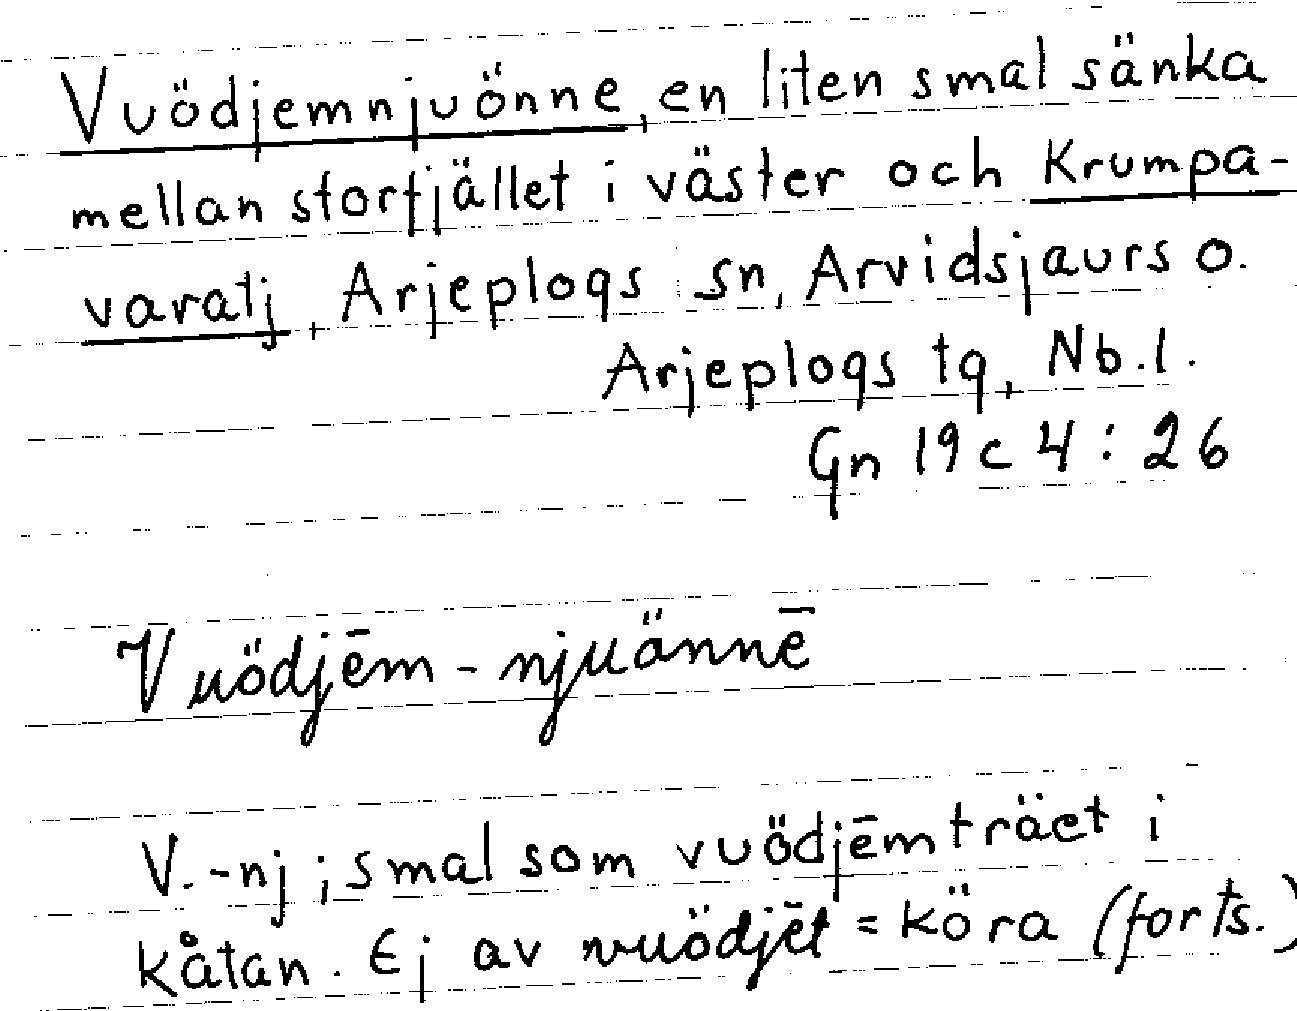 Vuödjemnjuönne, en liten smal sänka
mellan storfjället i väster och Krumpa-
varatj, Arjeplogs sn, Arvidsjaurs o.
Arjeplogs tg, Nb.l.
Gn 19 c 4 : 26
Vuödjēm - njuännē
V.-nj ; smal som vuödjēmträet i
kåtan. Ej av vuödjēt = köra (forts.)